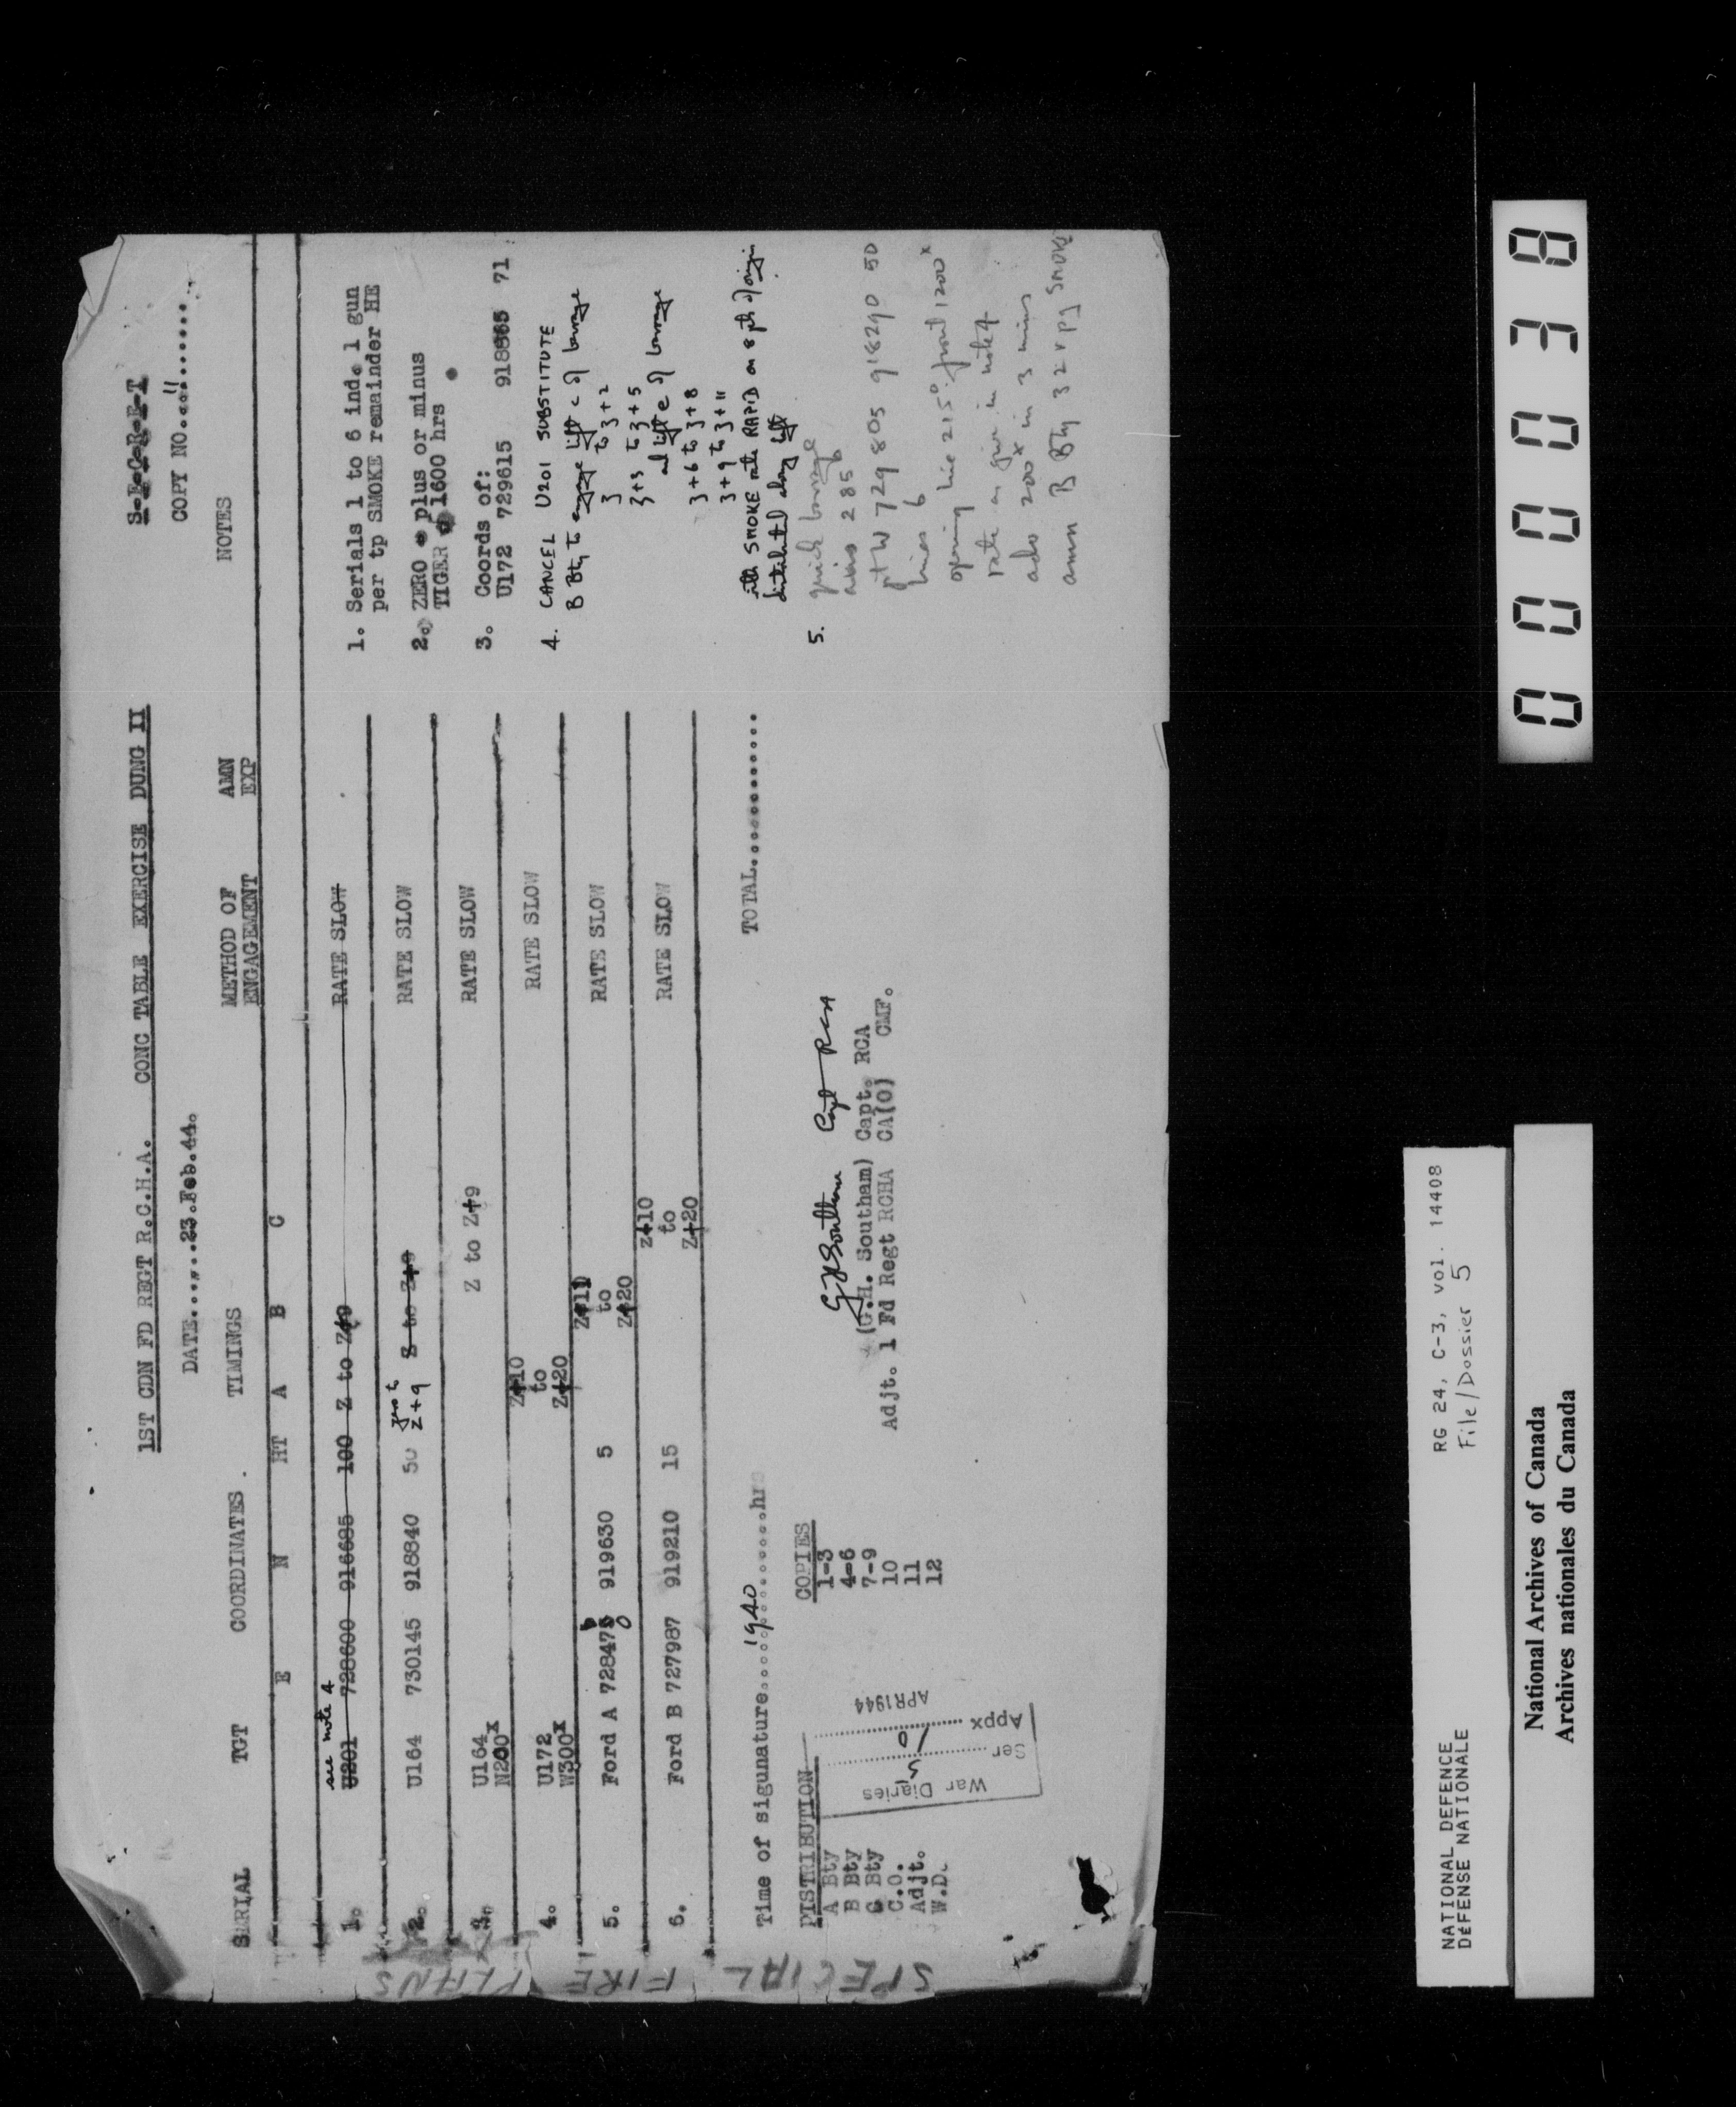 S-E-C-R-E-T
1ST CDN FD REGT R.C.H.A. CONC TABLE EXERCISE DUNG II
COPY NO...11.......
DATE......23.Feb.44.
SERIAL TGT COORDINATES . TIMINGS METHOD OF ENGAGEMENT AMN EXP NOTES
E N HT A B C
see note 4
1. U201 728600 916685 100 Z to Z+9 RATE SLOW
2. U164 730145 918840 50 zero to Z+9 Z to Z+9 RATE SLOW
3. U164 N200x Z to Z+9 RATE SLOW
4. U172 W300x Z+10 to Z+20 RATE SLOW
5. Ford A 72847 0 919630 5 Z+11 to Z+20 RATE SLOW
6. Ford B 727987 919210 15 Z+10 to Z+20 RATE SLOW
TOTAL............
1. Serials 1 to 6 ind. 1 gun
per tp SMOKE remainder HE
2. ZERO plus or minus
TIGER 1600 hrs
3. Coords of:
U172 729615 918865 71
4. CANCEL U201 SUBSTITUTE
B Bty to engage lift c of barrage
3 to 3+2
3+3 to 3+5
and lift e of barrage
3+6 to 3+8
3+9 to 3+11
with SMOKE rate RAPID on 8 pts of origin
distributed along lift
5. quick barrage
285
pt W 729805 918290 50
lines 6
opening line 215° front 1200x
rate as give in note 4
adv 200x in 3 mins
amn B Bty 32 rpg SMOKE
Time of sigunature....1940..........hrs
DISTRIBUTION COPIES
A Bty 1-3
B Bty 4-6
C Bty 7-9
C.O. 10
Adjt. 11
W.D. 12
GHSoutham Capt RCA
(G.H. Southam) Capt. RCA
Adjt. 1 Fd Regt RCHA CA(O) CMF.
War Diaries
Ser 5
Appx 10
APR1944
SPECIAL FIRE PLANS
NATIONAL DEFENCE
DÉFENSE NATIONALE
RG 24, C-3, vol. 14408
File/Dossier 5
National Archives of Canada
Archives nationales du Canada
000038